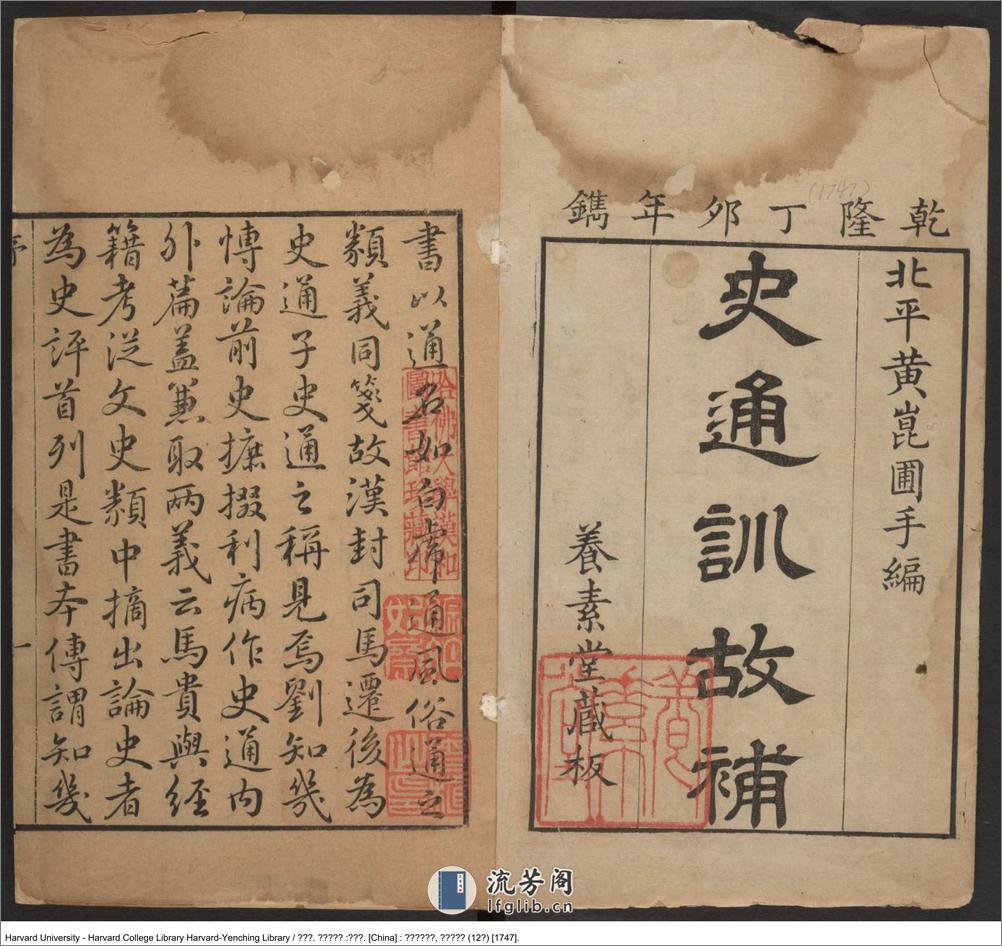 乾隆丁夘年鐫
(1747)
北平黃崑圃手編
史通訓故補
養素堂藏板
書以通名如白虎通風俗通之
類義同箋故漢封司馬遷後為
史通子史通之稱見焉劉知幾
愽論前史摭掇利病作史通内
外篇盖兼取兩義云馬貴與經
籍考從文史類中摘出論史者
為史評首列是書本傳謂知幾
序
一
哈佛大學漢和
圖書館珍藏印
流芳阁
lfglib.cn
Harvard University - Harvard College Library Harvard-Yenching Library / ???. ????? :???. [China] : ??????, ????? (12?) [1747].